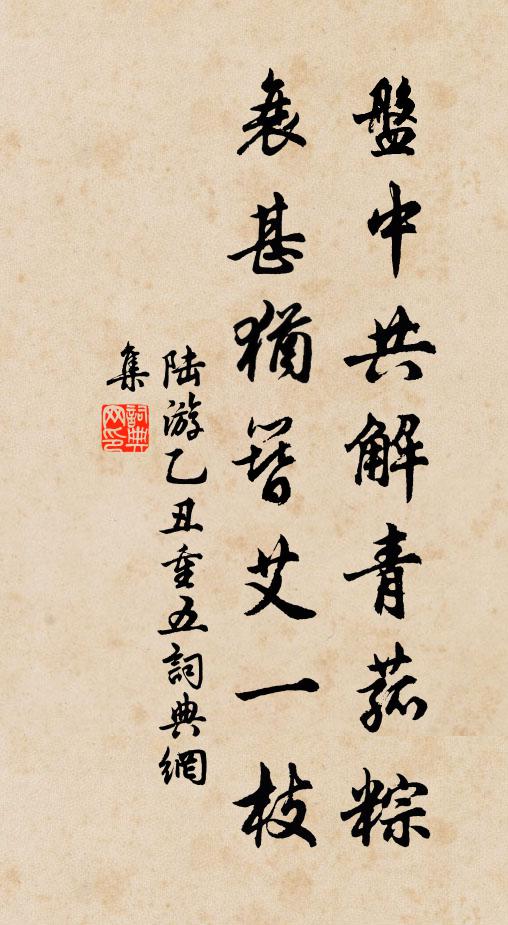 盤中共解青菰粽
衰甚猶簪艾一枝
陆游乙丑重五詞典網
集
詞典网印